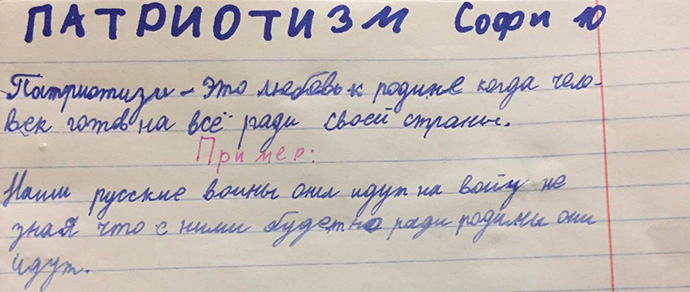 ПАТРИОТИЗМ Софи 10
Патриотизм - Это любовь к родине когда чело-
век готов на всё ради своей страны.
Пример:
Наши русские воины они идут на войну не
зная что с ними будет но ради родины они
идут.